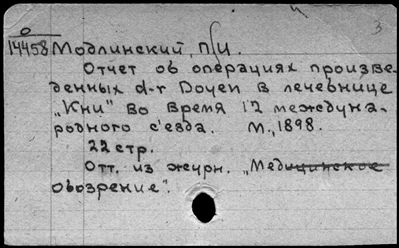 0 3
14458 Модлинский, П.И.
Отчет об операциях произве-
денных d-r Doyen в лечебнице
„Кни" во время 12 междуна-
родного с'езда. М., 1898.
22 стр.
Отт. из журн. „Медицинское
обозрение".